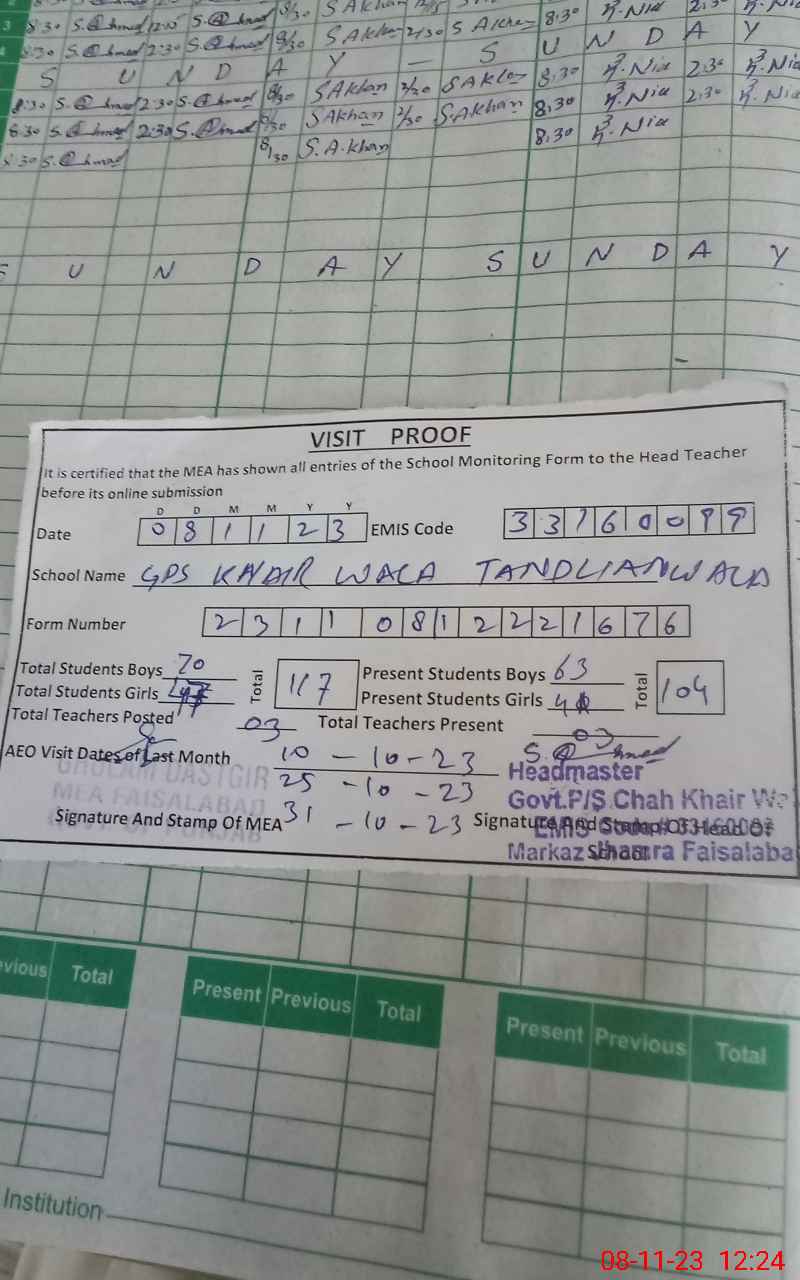 S A Khan
3 8:30 S.Ahmad 12:00 S.Ahmad 8/30 S A Khan 2/30 S A Khan 8:30 2:30
4 8:30 S.Ahmad 2:30 S.Ahmad 8/30
S U N D A Y — S U N D A Y
8:30 S.Ahmad 2:30 S.Ahmad 8/30 SAKhan 2/30 SAKhan 8:30 M.Nia 2:30 M.Nia
8:30 S.Ahmad 2:30 S.Ahmad 8/30 SAKhan 2/30 S.AKhan 8:30 M.Nia 2:30 M.Nia
8:30 S.Ahmad 8/30 S.A.Khan 8:30 M.Nia
S U N D A Y S U N D A Y
VISIT PROOF
It is certified that the MEA has shown all entries of the School Monitoring Form to the Head Teacher
before its online submission
D D M M Y Y
Date 0 8 1 1 2 3 EMIS Code 3 3 1 6 0 0 9 9
School Name GPS KHAIR WALA TANDLIANWALA
Form Number 2 3 1 1 0 8 1 2 2 2 1 6 7 6
Total Students Boys 70 Total 117 Present Students Boys 63 Total 104
Total Students Girls 47 Present Students Girls 41
Total Teachers Posted 03 Total Teachers Present 03
AEO Visit Dates of Last Month 10 – 10 – 23 S.Ahmed
25 – 10 – 23 Headmaster
GHULAM DASTGIR
MEA FAISALABAD Govt.P/S Chah Khair Wa
Signature And Stamp Of MEA 31 – 10 – 23 Signature And Stamp Of Head Of
School
Markaz Faisalaba
evious Total Present Previous Total Present Previous Total
Institution
08-11-23 12:24